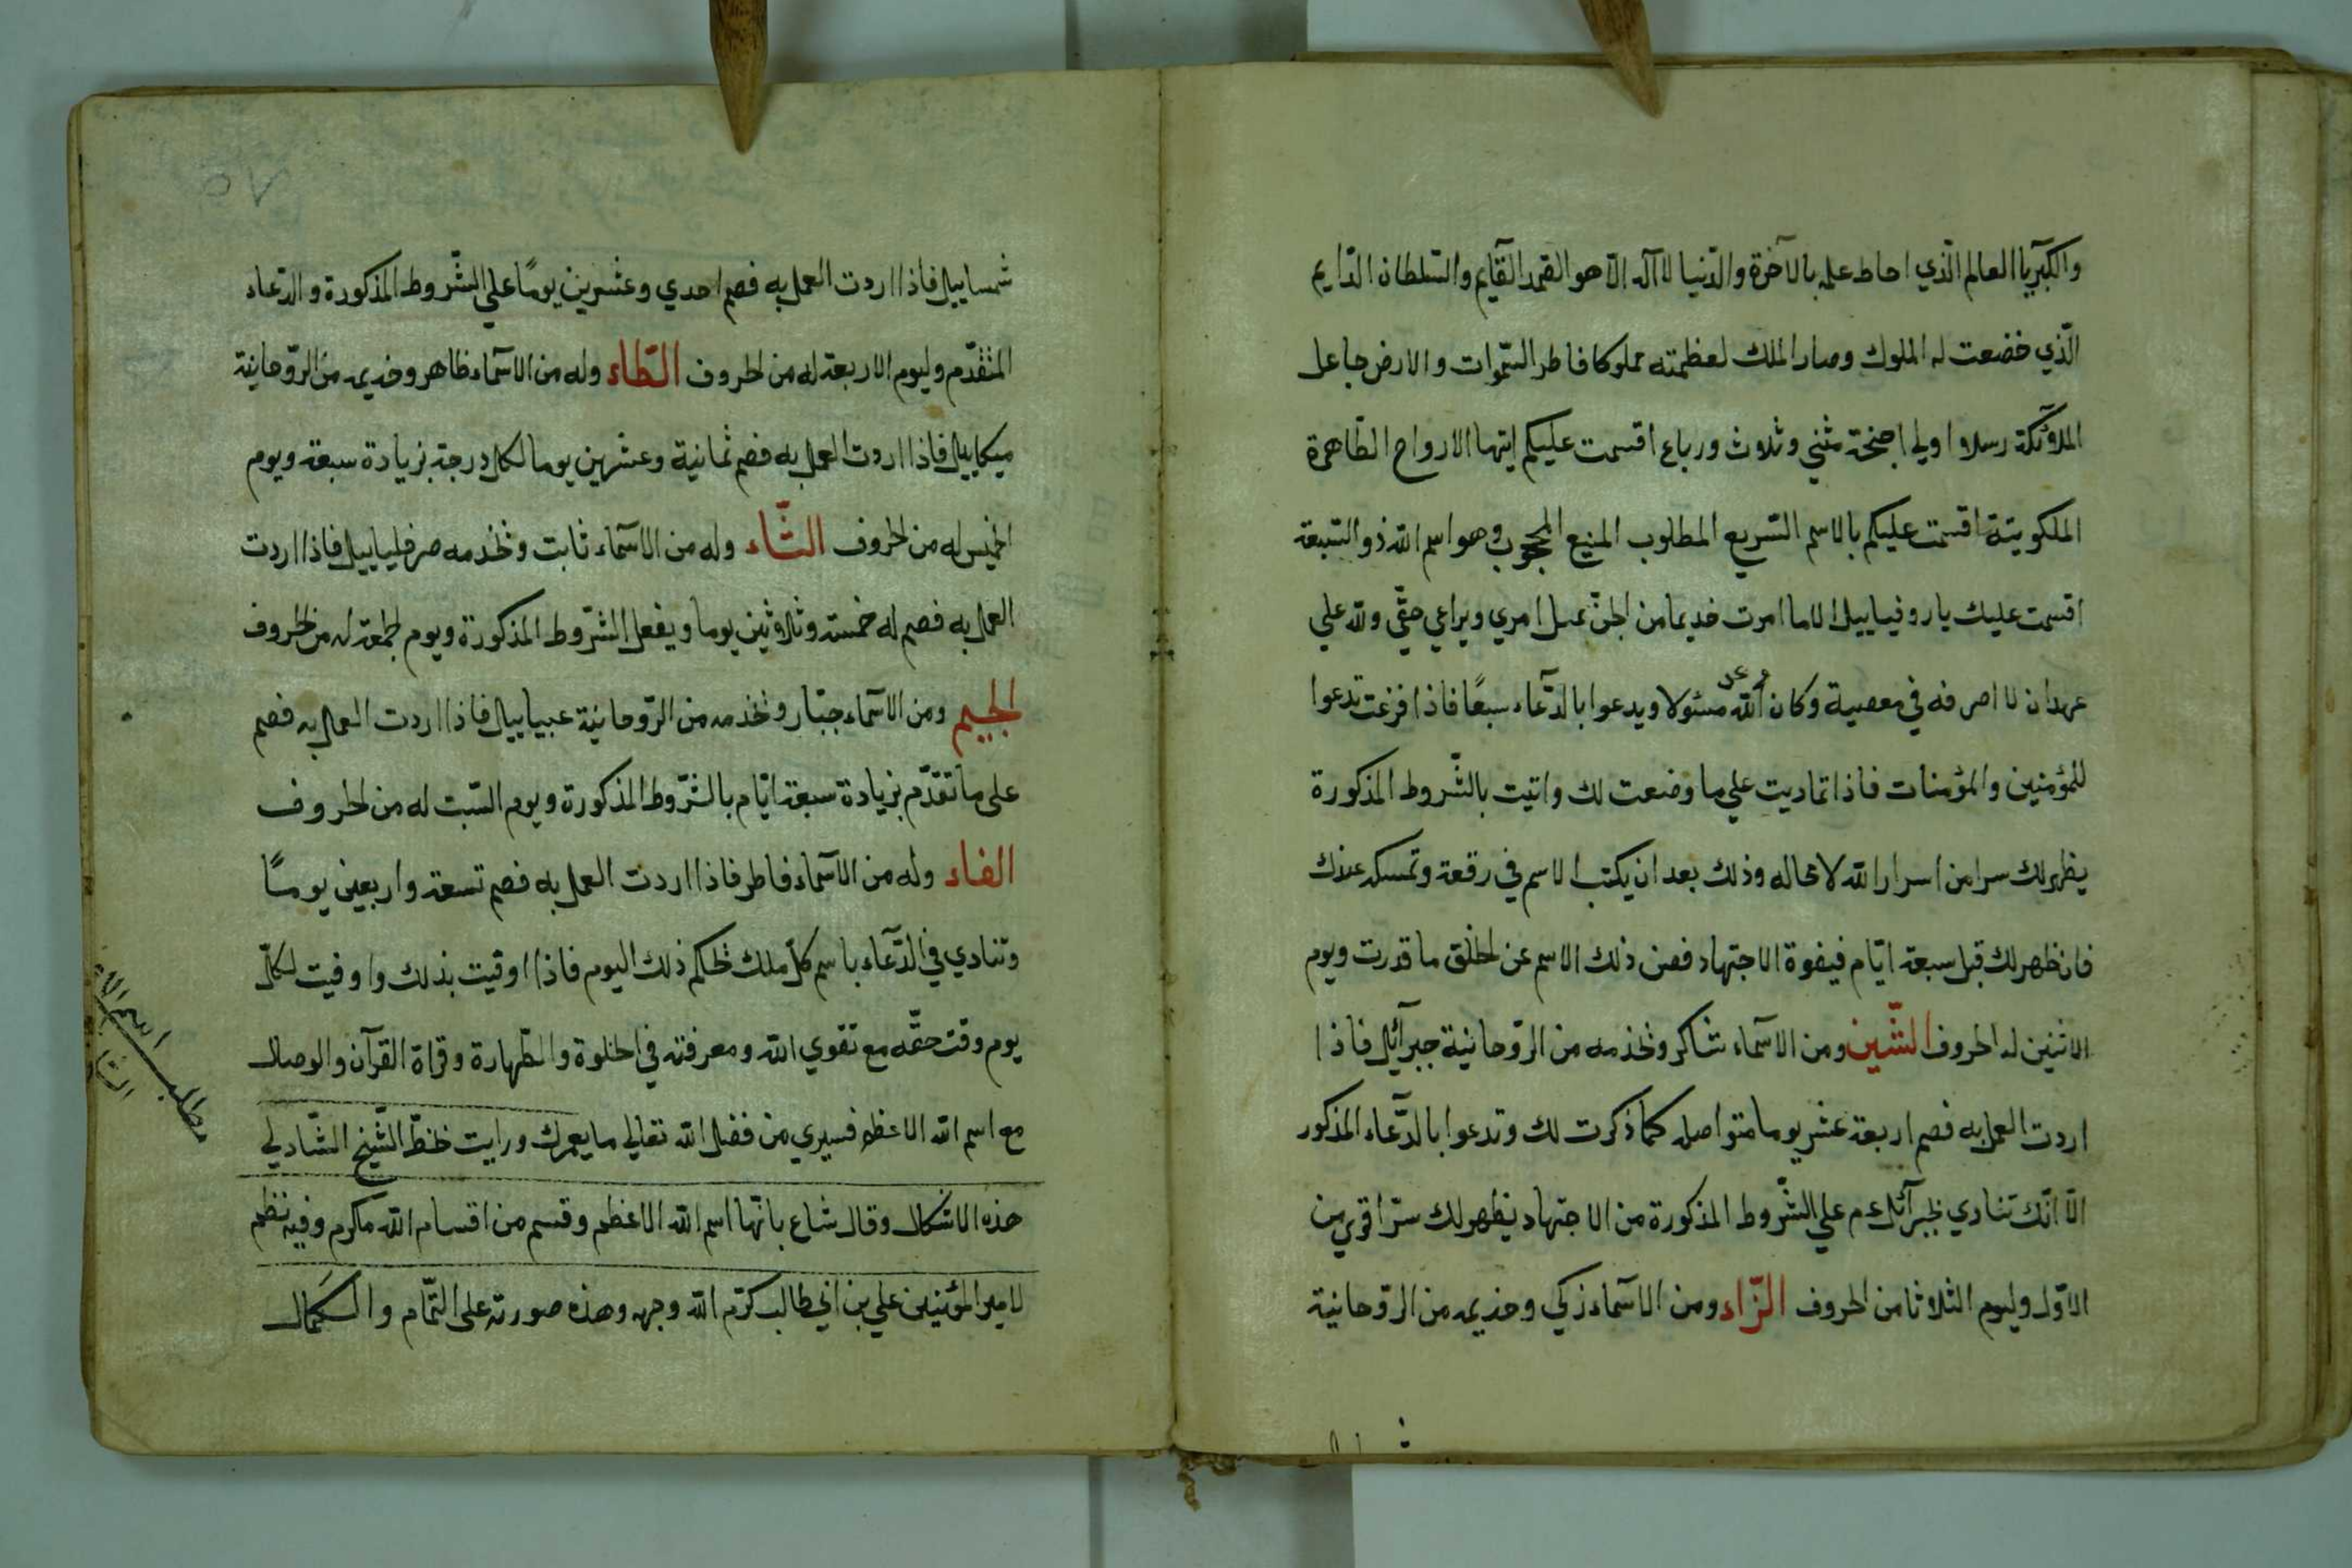 والكبريآ العالم الذي احاط علمه بالآخرة والدنيا لا اله الا هو الصمد القايم والسلطان الدايم
الذي خضعت له الملوك وصار الملك لعظمته مملوكا فاطر السموات والارض جاعل
الملائكة رسلا اولي اجنحة مثني وثلاث ورباع اقسمت عليكم ايتها الارواح الطاهرة
الملكويتة اقسمت عليكم بالاسم السريع المطلوب المنيع المحجوب وهو اسم الله ذو السبعة
اقسمت عليك يا روفياييل الا ما امرت خديما من الجن عمل امري ويراعي حقي ولله علي
عهد ان لا اصرفه في معصية وكان عهد الله مسئولا ويدعوا بالدعاء سبعًا فاذا فرغت تدعوا
للمؤمنين والمؤمنات فاذا تماديت علي ما وضعت لك واتيت بالشروط المذكورة
يظهر لك سرا من اسرار الله لا محاله وذلك بعد ان يكتب الاسم في رقعة وتمسكه عندك
فان ظهر لك قبل سبعة ايام فبقوة الاجتهاد فصن ذلك الاسم عن الخلق ما قدرت ويوم
الاثنين له الحروف الشين ومن الاسماء شاكر وتخدمه من الروحانية جبرآئيل فاذا
اردت العمل به فصم اربعة عشر يوما متواصله كما ذكرت لك وتدعوا بالدعاء المذكور
الا انك تنادي لجبرآئل ع م علي الشروط المذكورة من الاجتهاد يظهر لك سرا قوي من
الاول وليوم الثلاثا من الحروف الزاء ومن الاسماء زكي وخديمه من الروحانية
شمساييل فاذا اردت العمل به فصم احدي وعشرين يومًا علي الشروط المذكورة والدعاء
المتقدم وليوم الاربعة له من الحروف الظاء وله من الاسماء ظاهر وخديمه من الروحانية
ميكاييل فاذا اردت العمل به فصم ثمانية وعشرين يوما لكل درجة بزيادة سبعة ويوم
الخميس له من الحروف الثاء وله من الاسماء ثابت وتخدمه صرفياييل فاذا اردت
العمل به فصم له خمسة وثلاثين يوما ويفعل الشروط المذكورة ويوم الجمعة له من الحروف
الجيم ومن الاسماء جبار وتخدمه من الروحانية عيناييل فاذا اردت العمل به فصم
على ما تقدم بزيادة سبعة ايام بالشروط المذكورة ويوم السبت له من الحروف
الفاء وله من الاسماء فاطر فاذا اردت العمل به فصم تسعة واربعين يومًا
وتنادي في الدعاء باسم كل ملك تحكم ذلك اليوم فاذا اوقيت بذلك واوفيت لكل
يوم وقت حقه مع تقوي الله ومعرفته في الخلوة والطهارة وقراة القرآن والوصال
مع اسم الله الاعظم فسيري من فضل الله تعالي ما يعمرك ورايت بخط الشيخ الشادلي
هذه الاشكال وقال شاع بانها اسم الله الاعظم وقسم من اقسام الله مكرم وفيه نظم
لامير المؤمنين علي بن ابي طالب كرم الله وجهه وهذه صورته على التمام والكمال
مطلب اسم الله